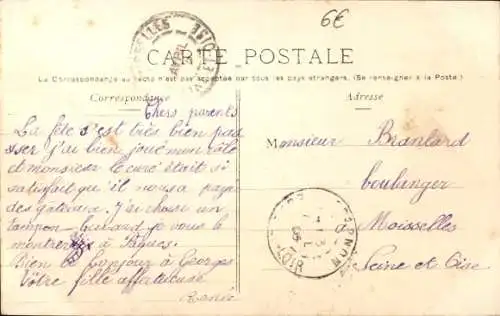 6€
CARTE POSTALE
La Correspondance au recto n'est pas acceptée par tous les pays étrangers. (Se renseigner à la Poste)
Correspondance
Adresse
Chers parents
La fête s'est très bien pas
sser j'ai bien joué mon rôle
et monsieur le curé était si
satisfait qu'il nous a payé
des gâteaux. J'ai choisi un
tampon-buvard je vous le
montrerais à Pâques.
Bien le bonjour à Georges
Vôtre fille affectueuse
Monsieur Branlard
boulanger
Moisselles
Seine et Oise
MOISSELLES
AVRIL